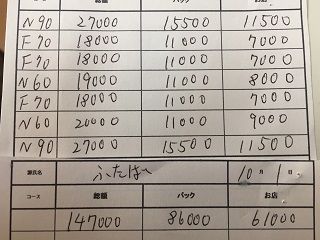 総額 バック お店
N 90 27000 15500 11500
F 70 18000 11000 7000
F 70 18000 11000 7000
N 60 19000 11000 8000
F 70 18000 11000 7000
N 60 20000 11000 9000
N 90 27000 15500 11500
源氏名 ふたば 10月1日
コース 総額 バック お店
147000 86000 61000